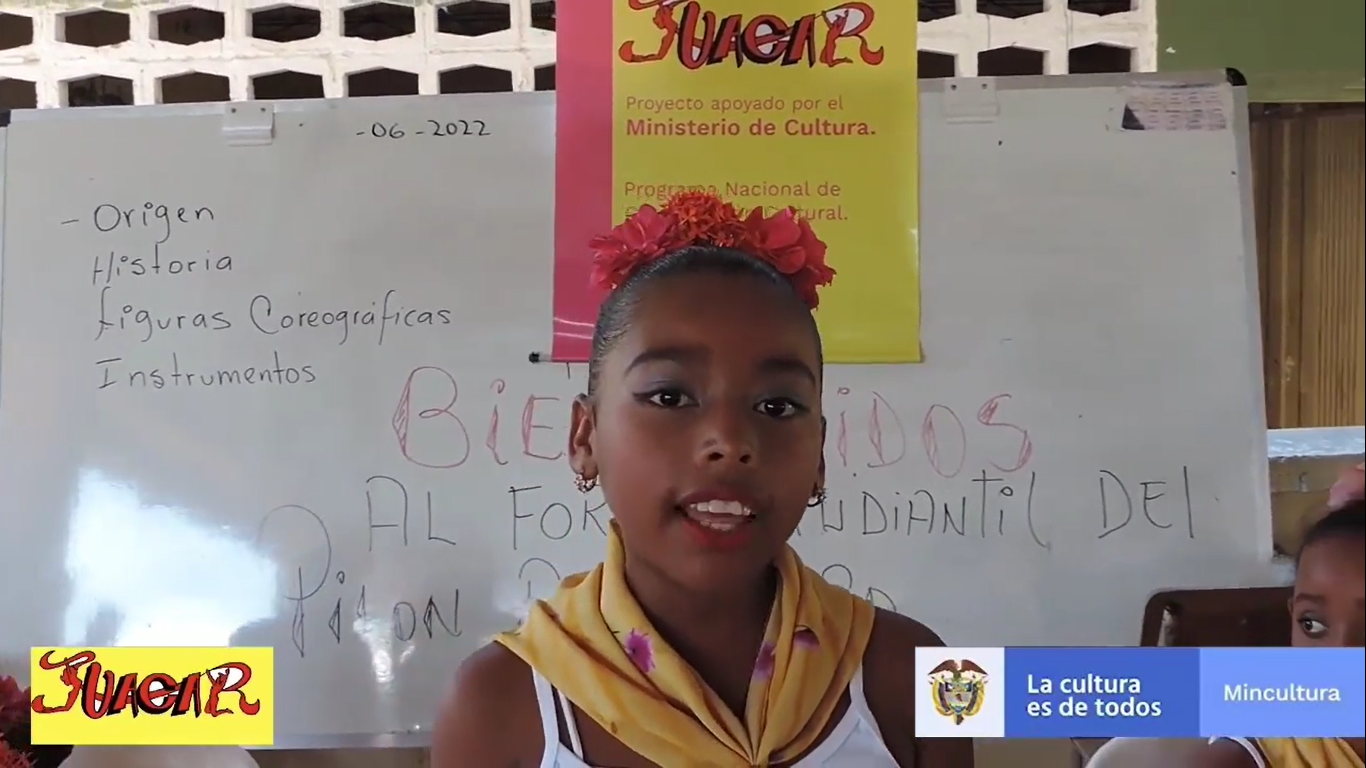 JUACAR
Proyecto apoyado por el
Ministerio de Cultura.
Programa Nacional de
-06-2022
- Origen
Historia
Figuras Coreográficas
Instrumentos
BiE iDOS
AL FOR UDiANTiL DEl
PiLON
JUACAR
La cultura
es de todos
Mincultura